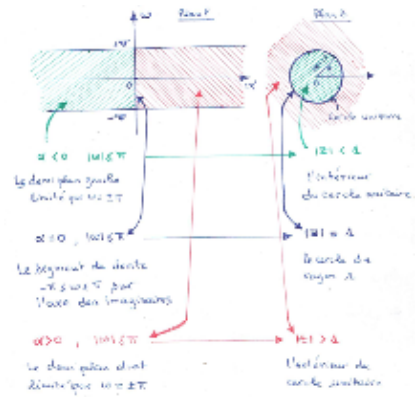 ω
+π
0
-π
0
cercle unitaire
α<0 |ω|≤π
|z| < 1
Le demi plan gauche
limité par ω=±π
l'intérieur
du cercle unitaire
α=0, |ω|≤π
|z| = 1
Le segment de droite
-π≤ω≤π par
l'axe des imaginaires
le cercle de
rayon 1
α>0, |ω|≤π
|z|>1
Le demi plan droit
limité par ω=±π
l'extérieur du
cercle unitaire